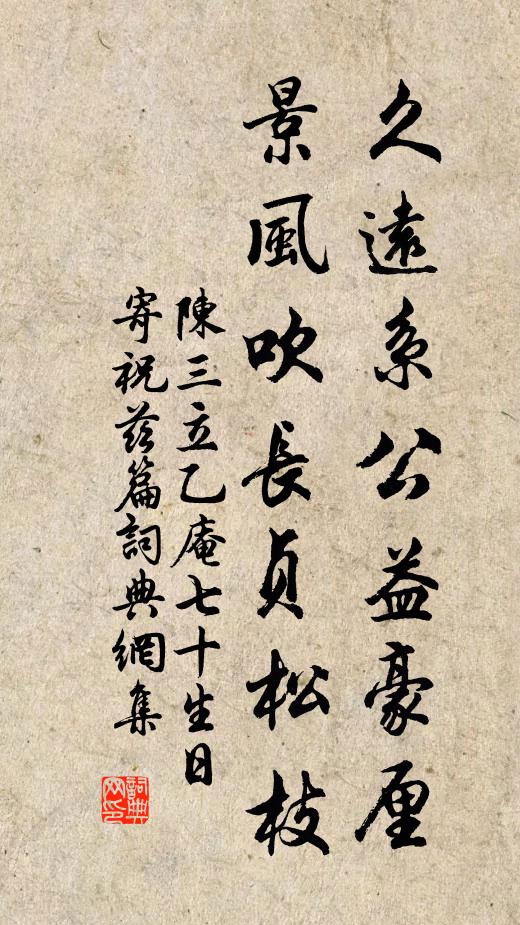 久遠系公益豪厘
景風吹長貞松枝
陳三立乙庵七十生日
寄祝茲篇詞典網集
詞典网印